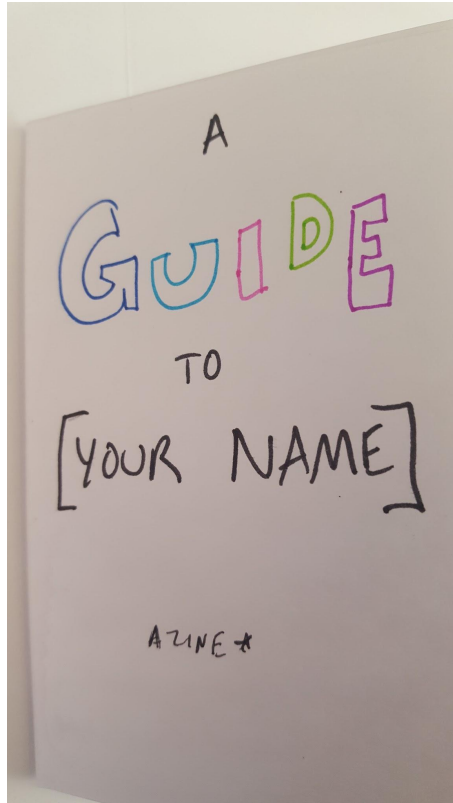 A
GUIDE
TO
[YOUR NAME]
A ZINE*